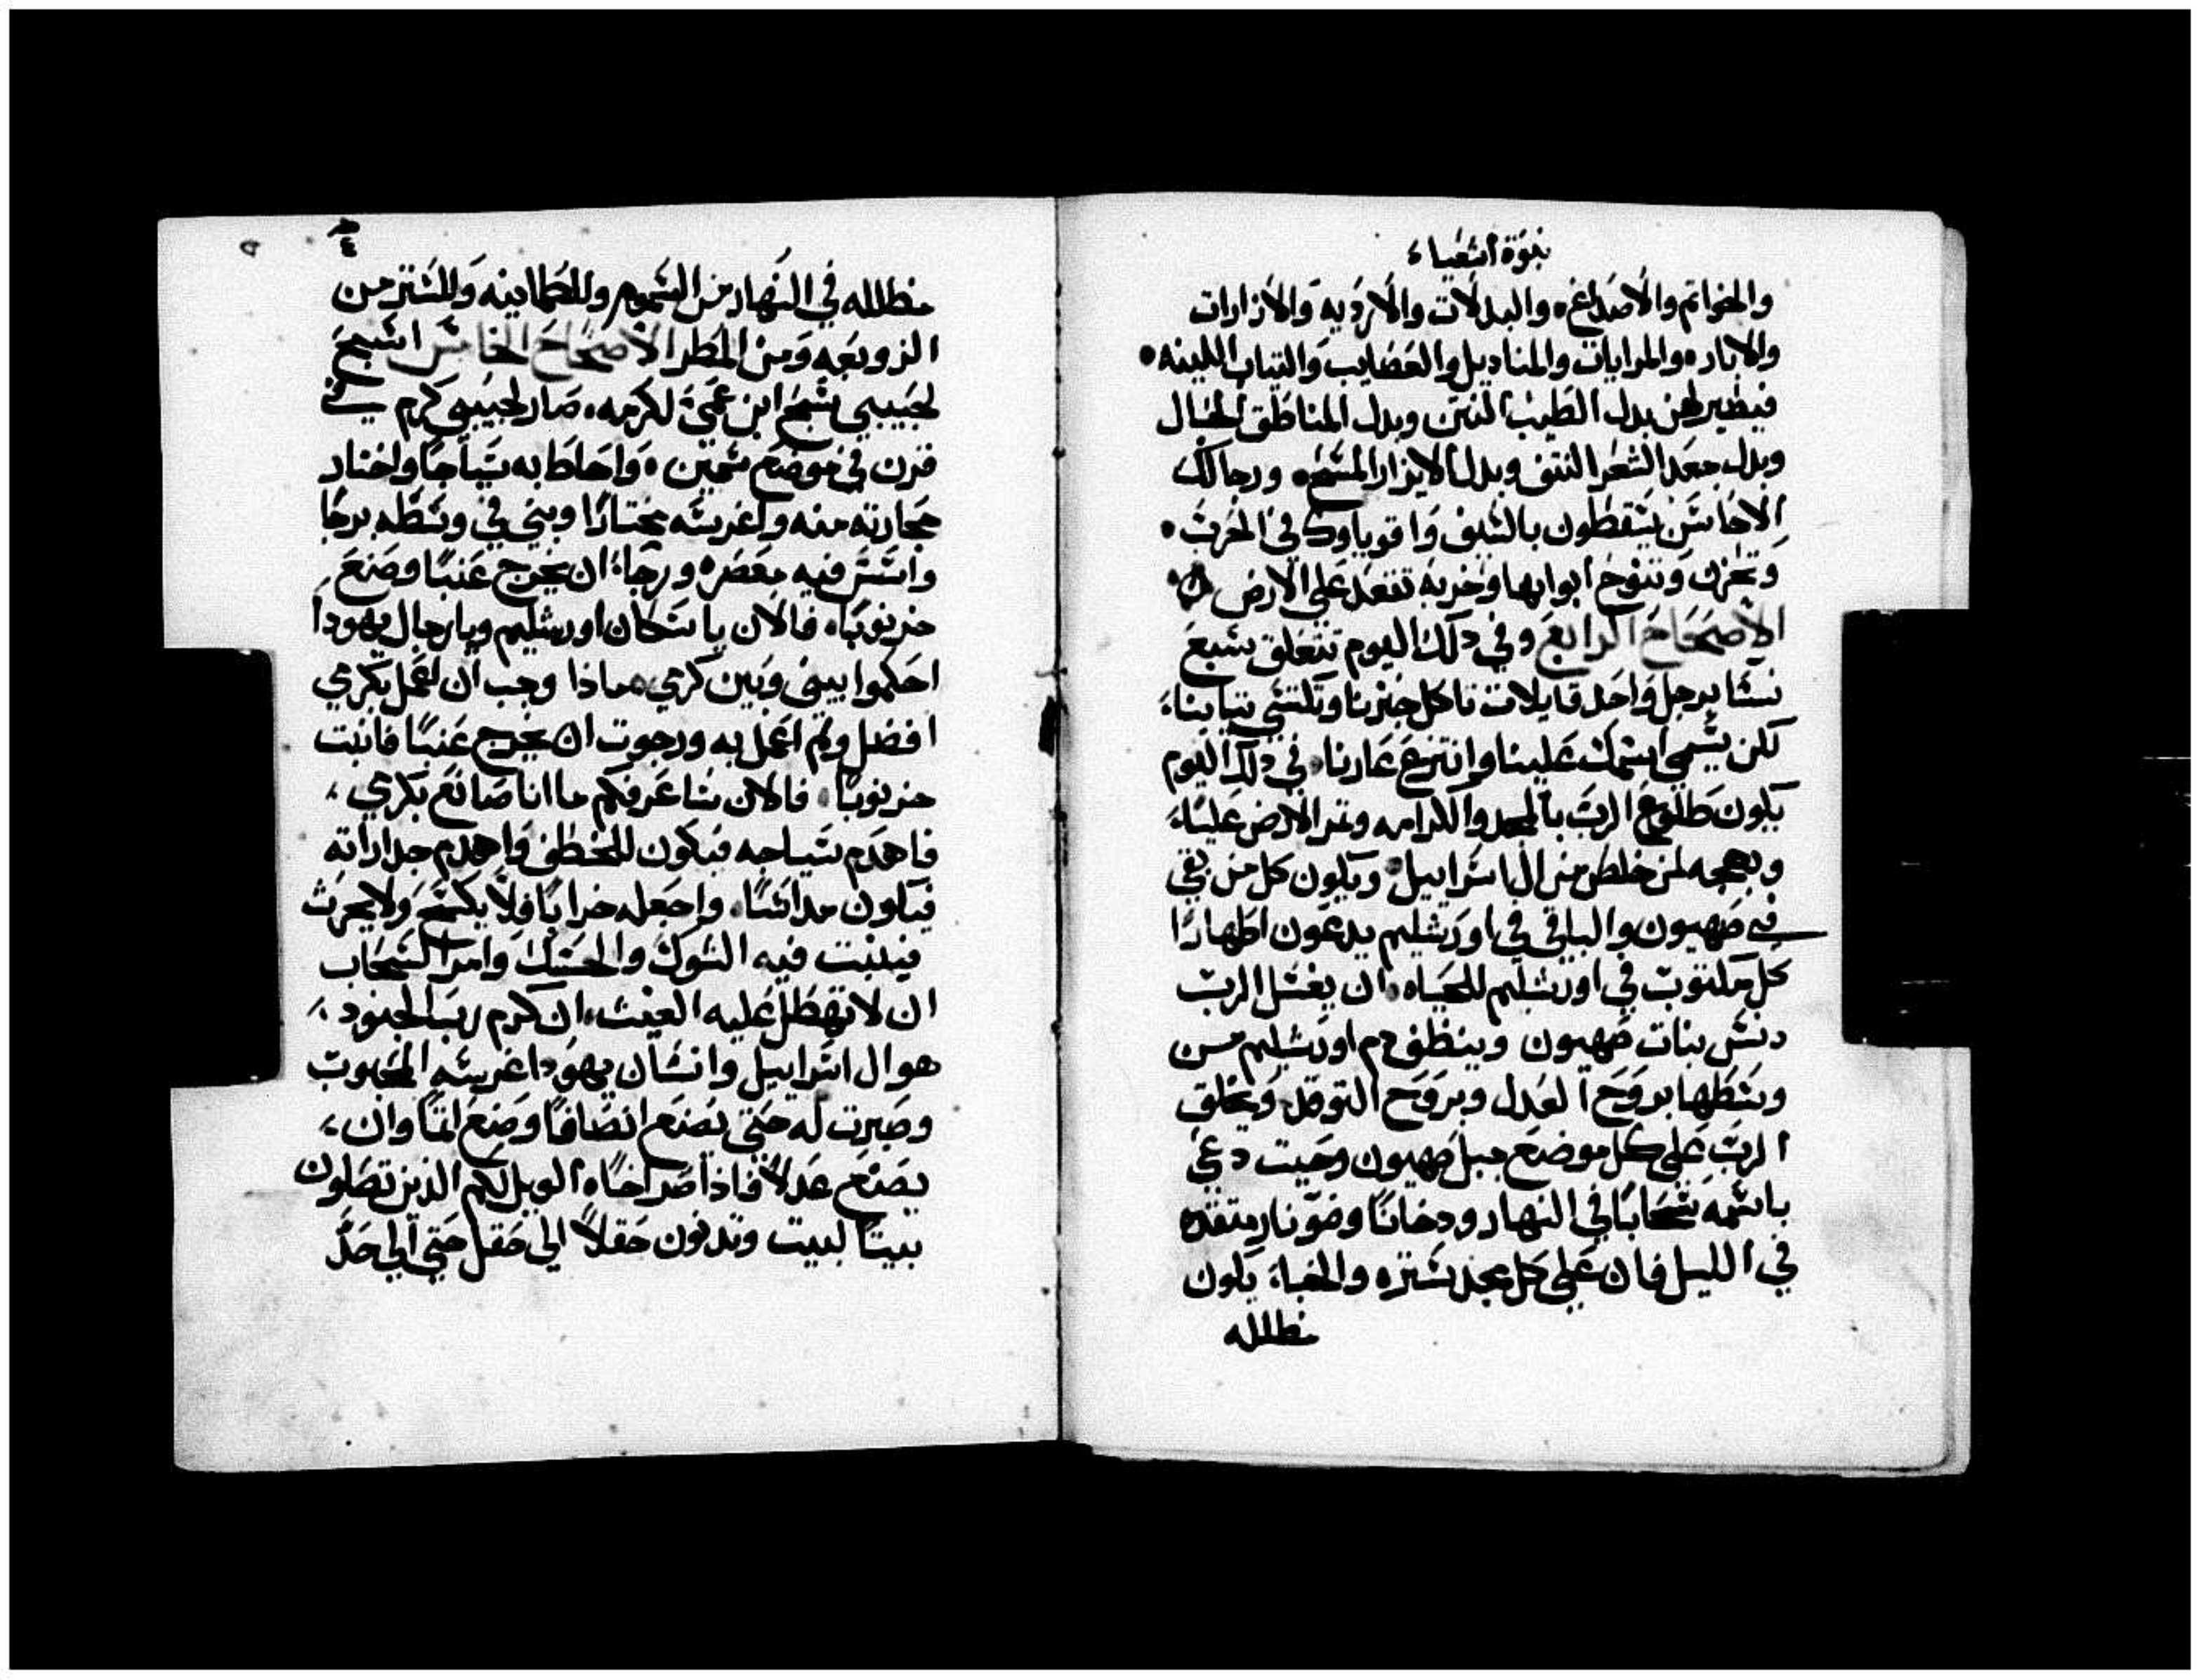 نبوة اشعياء
والخواتم والاصداغ، والبدلات والارديه والازارات
والابارہ والمرايات والمناديل والعَصَايب والتياب اللينه.
فيصير لهن بدل الطيب النتن وبدل المناطق الحبال
وبدل جعد الشعر النتف وبدل الايزار المسح، ورجالك
الاحاسن يسقطون بالسيف واقوياوك في الحرب.
وتحزن وتنوح ابوابها وخربه تقعد على الارض
الأصحاح الرابع وفي دلك اليوم تتعلق سبع
نسا برجل واحد قايلات ناكل خبزنا ونكتسي تيابنا،
لكن يسمي اسمك علينا وانتزع عارنا، في دلك اليوم
يكون طلوع الرب بالمجد والكرامه وتمر الارض عليا،
وبهجه لمن خلص من ال اسراييل، ويكون كل من بقي
في صهيون والباقي في اورشليم يدعون اطهارًا
كل مكتوب في اورشليم للحياه، ان يغسل الرب
دنس بنات صهيون وينظف دم اورشليم من
وسطها بروح العدل وبروح التوقد، ويخلق
الرب على كل موضع جبل صهيون وحيت دعي
باسمه سحابًا في النهار ودخانًا وضو نار متقده
في الليل فان على كل مجد ستره والخباء يكون
مظلله
٤
٥
مظلله في النهار من السموم وللطمانينه وللستر من
الزوبعه ومن المطر الأصحاح الخامس اسبح
لحبيبي تسبحَ ابن عمي لكرمه، صار لحبيبي كرم في
قرن في موضع سمين، واحاط به سياجًا واختار
حجارته منه واغرسه مختارًا وبني في وسطه برجًا
واسس فيه معصره ورجاء ان يخرج عنبًا وصنع
خرنوبًا، فالان يا سكان اورشليم ويا رجال يهودا
احكموا بيني وبين كرمي، ماذا وجب ان اعمل بكرمي
افضل ولم اعمل به ورجوت ان يخرج عنبًا فانبت
خرنوبًا، فالان ساعرفكم ما انا صانع بكرمي،
فاهدم سياجه فيكون للخطف واهدم جداراته
فيكون مداسًا، واجعله خرابًا فلا يكسح ولا يحرث
فينبت فيه الشوك والحسك وامر السحاب
ان لا تهطل عليه الغيث، ان كرم رب الجنود،
هو ال اسراييل وانسان يهودا غرسه المحبوب
وصبرت له حتى يصنع انصافًا وصنع اتمًا وان،
يصنع عدلًا فاذا صراخًا، الويل لكم الذين تصلون
بيتًا لبيت وتدنون حقلًا الي حقل حتي الي حد